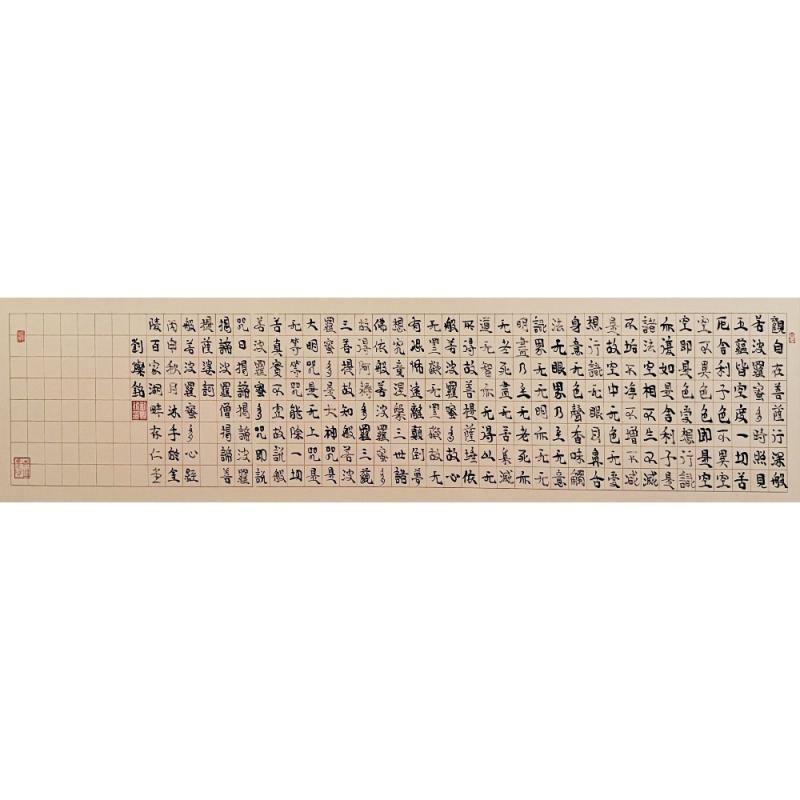 觀自在菩薩行深般
若波羅蜜多時照見
五蘊皆空度一切苦
厄舍利子色不異空
空不異色色即是空
空即是色受想行識
亦復如是舍利子是
諸法空相不生不滅
不垢不淨不增不減
是故空中无色无受
想行識无眼耳鼻舌
身意无色聲香味觸
法无眼界乃至无意
識界无无明亦无无
明盡乃至无老死亦
无老死盡无苦集滅
道无智亦无得以无
所得故菩提薩埵依
般若波羅蜜多故心
无罣礙无罣礙故无
有恐怖遠離顛倒夢
想究竟涅槃三世諸
佛依般若波羅蜜多
故得阿耨多羅三藐
三菩提故知般若波
羅蜜多是大神咒是
大明咒是无上咒是
无等等咒能除一切
苦真實不虛故說般
若波羅蜜多咒即說
咒曰揭諦揭諦波羅
揭諦波羅僧揭諦菩
提薩婆訶
般若波羅蜜多心經
丙申秋月沐手於金
陵百家湖畔存仁堂
劉樂銘